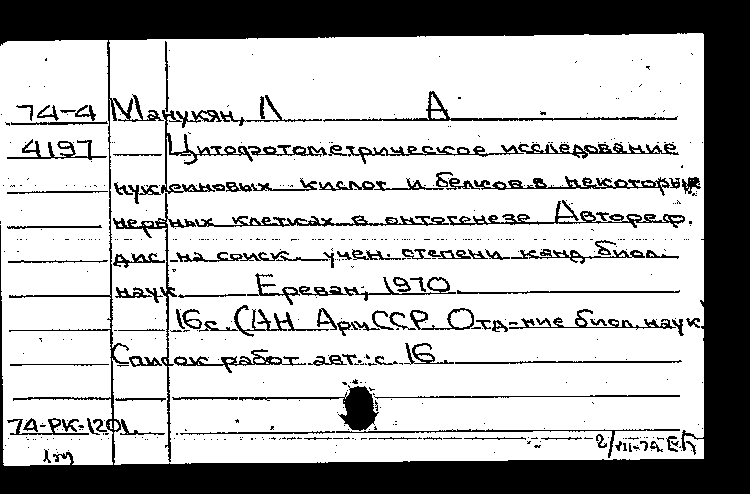 74-4 Манукян, Л А
4197 Цитофотометрическое исследование
нуклеиновых кислот и белков в некоторые
нервных клетках в онтогенезе Автореф.
дис на соиск. учен. степени канд биол.
наук. Ереван, 1970.
16с. (АН АрмССР. Отд-ние биол. наук)
Список работ авт.: с. 16.
74-РК-1201.
2/VII-74. Е.Б